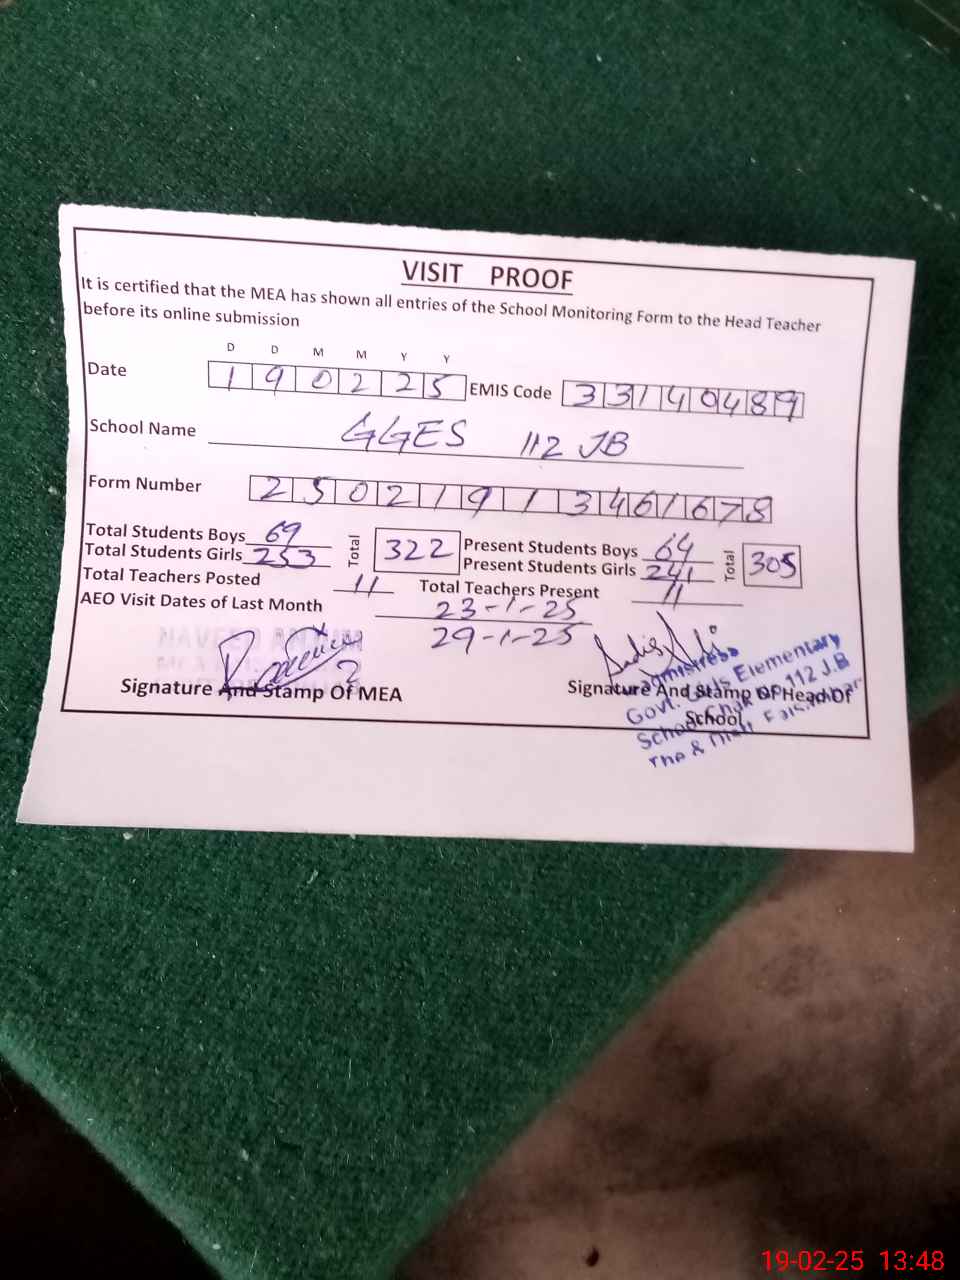 VISIT PROOF
It is certified that the MEA has shown all entries of the School Monitoring Form to the Head Teacher
before its online submission
D D M M Y Y
Date 190225 EMIS Code 33140489
School Name GGES 112 JB
Form Number 25021913461678
Total Students Boys 69 Total 322 Present Students Boys 64 Total 305
Total Students Girls 253 Present Students Girls 241
Total Teachers Posted 11 Total Teachers Present 11
AEO Visit Dates of Last Month 23-1-25
29-1-25
NAVEED ANJUM
Signature And Stamp Of MEA
Signature And Stamp Of Head Of
School
Govt. Girls Elementary
School Chak No 112 J.B
The & Distt. Faisalabad
19-02-25 13:48